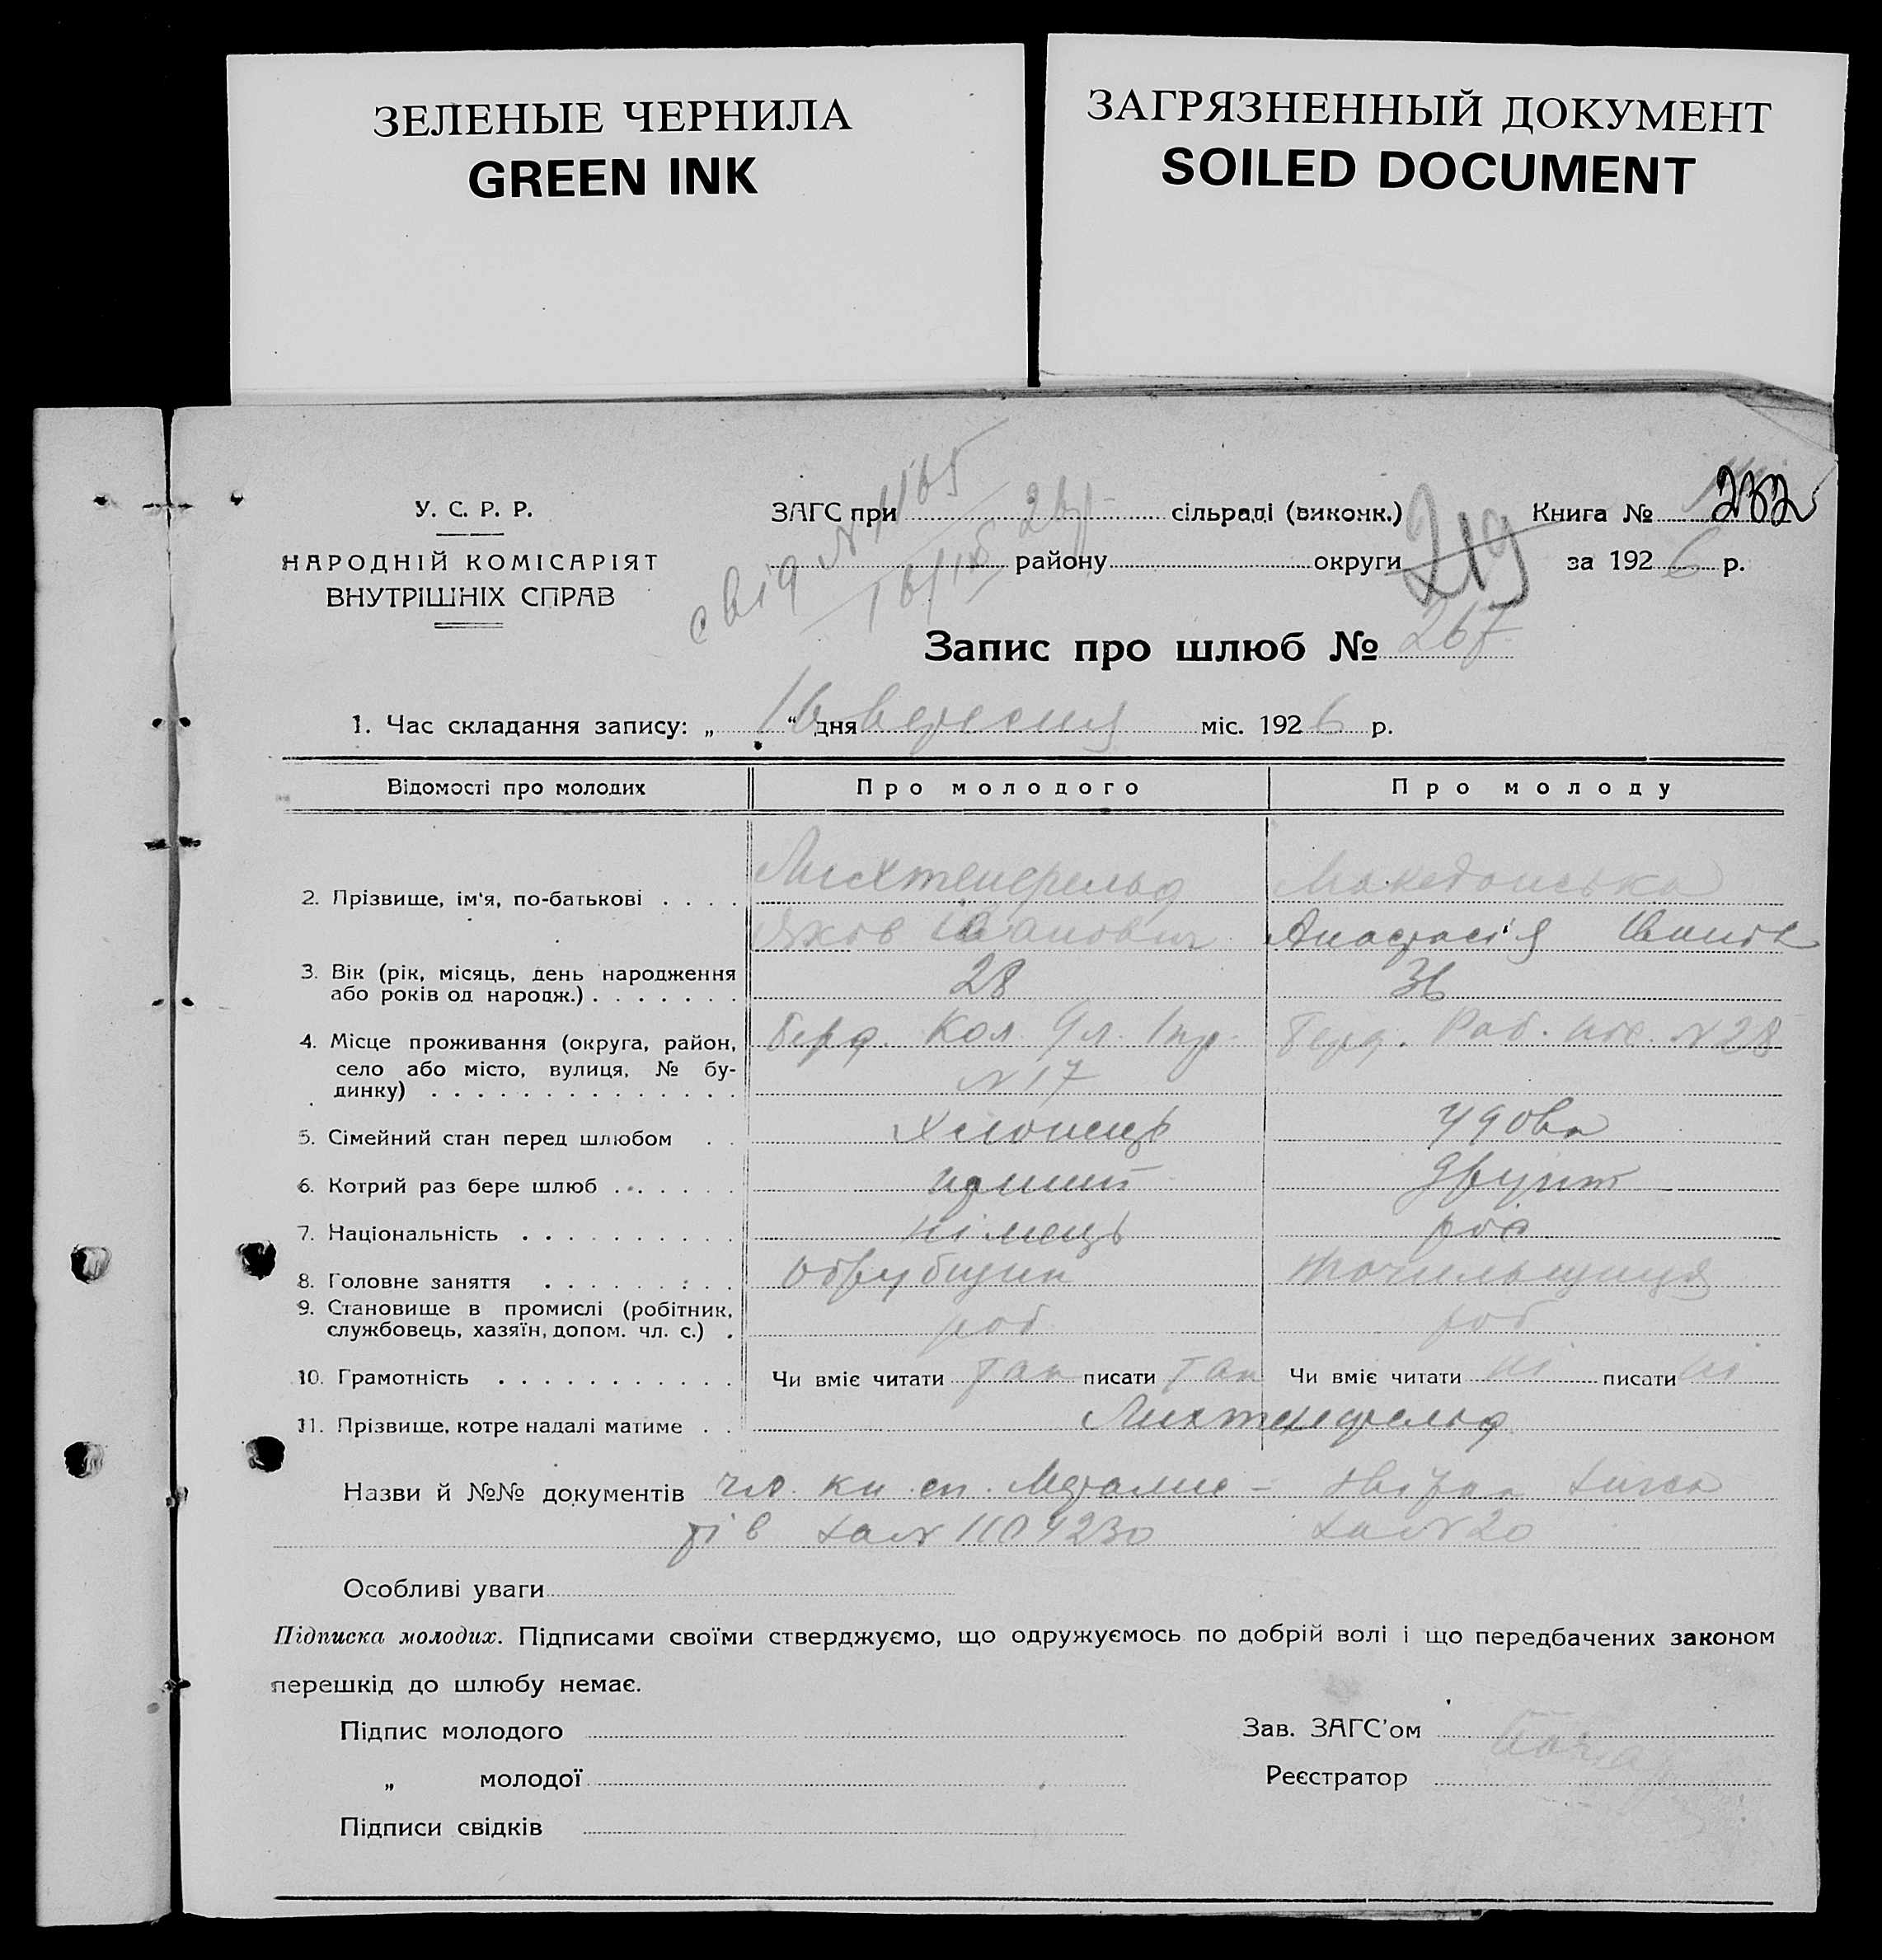 ЗЕЛЕНЫЕ ЧЕРНИЛА
GREEN INK
ЗАГРЯЗНЕННЫЙ ДОКУМЕНТ
SOILED DOCUMENT
У. С. Р. Р.
НАРОДНІЙ КОМІСАРІЯТ
ВНУТРІШНІХ СПРАВ
свід №
16/ІХ 26 р
ЗАГС при сільраді (виконк.)
району округи
219
Книга № 232
за 1926 р.
Запис про шлюб № 267
1. Час складання запису: „16“ дня вересня міс. 1926 р.
Відомості про молодих Про молодого Про молоду
2. Прізвище, ім'я, по-батькові . . . . Лихтенфельд Македонська
Яков Іванович Анастасія Іванов
3. Вік (рік, місяць, день народження
або років од народж.) . . . . . . . 28 36
4. Місце проживання (округа, район, Берд. Кол. Берд. Раб. пос. № 28
село або місто, вулиця, № бу-
динку) . . . . . . . . . . . . . . № 17
5. Сімейний стан перед шлюбом . . хлопець удова
6. Котрий раз бере шлюб . . . . . .
7. Національність . . . . . . . . . . німець рос
8. Головне заняття . . . . . . : . . обрубщик точильщиця
9. Становище в промислі (робітник,
службовець, хазяїн, допом. чл. с.) . роб роб
10. Грамотність . . . . . . . . . . . Чи вміє читати так писати так Чи вміє читати ні писати ні
11. Прізвище, котре надалі матиме . . Лихтенфельд
Назви й №№ документів чл. кн. сп. Металис-
тів за № 1104230 за № 20
Особливі уваги
Підписка молодих. Підписами своїми стверджуємо, що одружуємось по добрій волі і що передбачених законом
перешкід до шлюбу немає.
Підпис молодого Зав. ЗАГС'ом
„ молодої Реєстратор
Підписи свідків